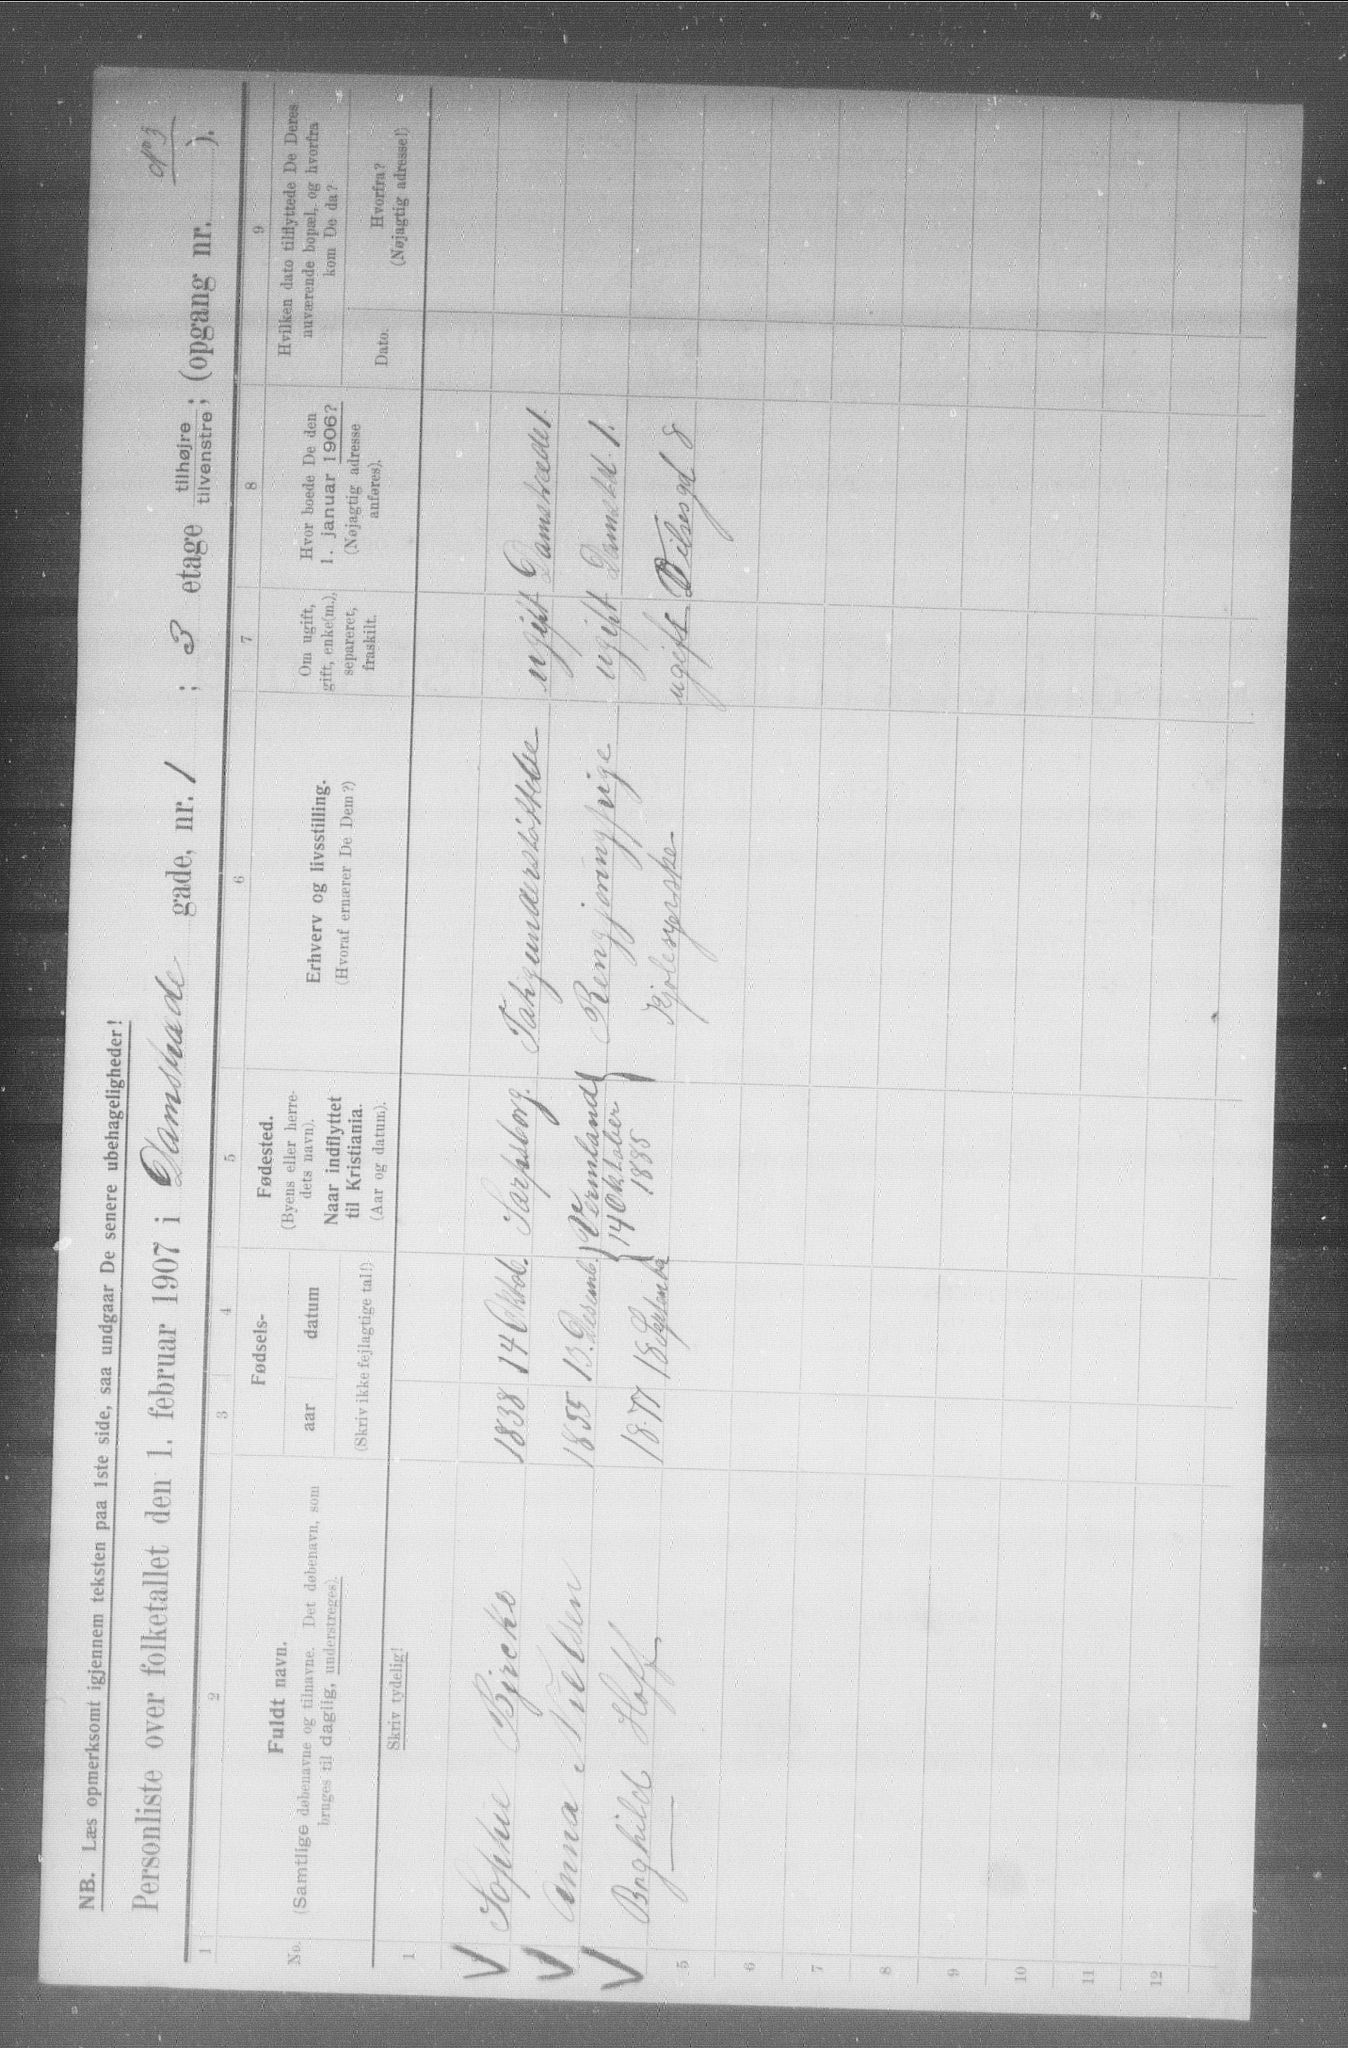 NB. Læs opmerksomt igjennem teksten paa 1ste side, saa undgaar De senere ubehageligheder!
No 3
Personliste over folketallet den 1. februar 1907 i Damstræde gade, nr. 1 ; 3 etage tilhøjre tilvenstre ; (opgang nr. ).
1 2 3 4 5 6 7 8 9
No.
Fuldt navn.
(Samtlige døbenavne og tilnavne. Det døbenavn, som
bruges til daglig, understreges).
Skriv tydelig!
Fødsels-
aar datum
(Skriv ikke fejlagtige tal!)
Fødested.
(Byens eller herre-
dets navn).
Naar indflyttet
til Kristiania.
(Aar og datum).
Erhverv og livsstilling.
(Hvoraf ernærer De Dem?)
Om ugift,
gift, enke(m.),
separeret,
fraskilt.
Hvor boede De den
1. januar 1906?
(Nøjagtig adresse
anføres).
Hvilken dato tilflyttede De Deres
nuværende bopæl, og hvorfra
kom De da?
Dato.
Hvorfra?
(Nøjagtig adresse!)
1
V Sophie Bjrcke 1838 14 Oktob. Sarpsborg. ugift Damstræde 1.
V Anna Nielsen 1855 13. Desemb. Vermland Rengjøringspige ugift Damstrd. 1.
14 Oktober
1885
V Borghild Hoff 1877 18 September Kjolesyerske ugift 8
5
6
7
8
9
10
11
12